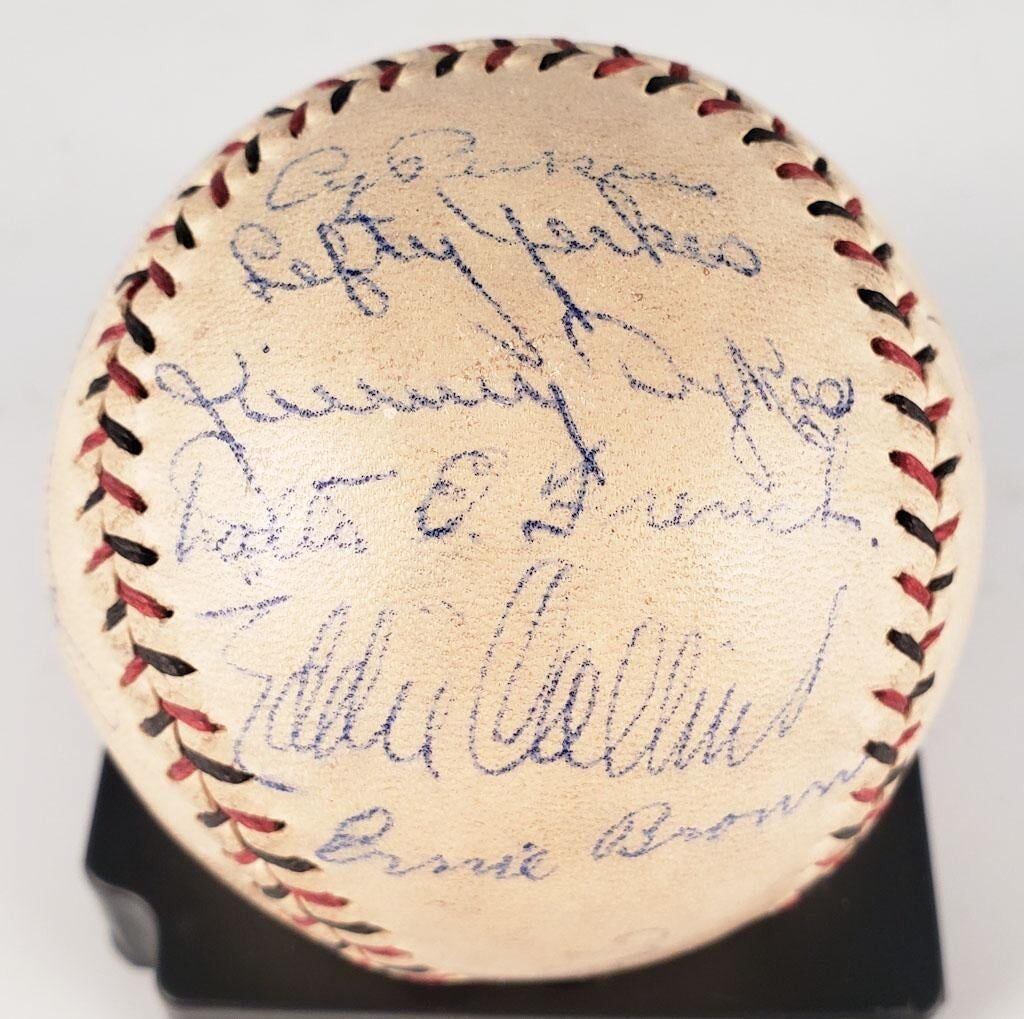 Cy Perkins
Lefty Yerkes
Jimmy Dykes
Walter E. French.
Eddie Collins
Ernie